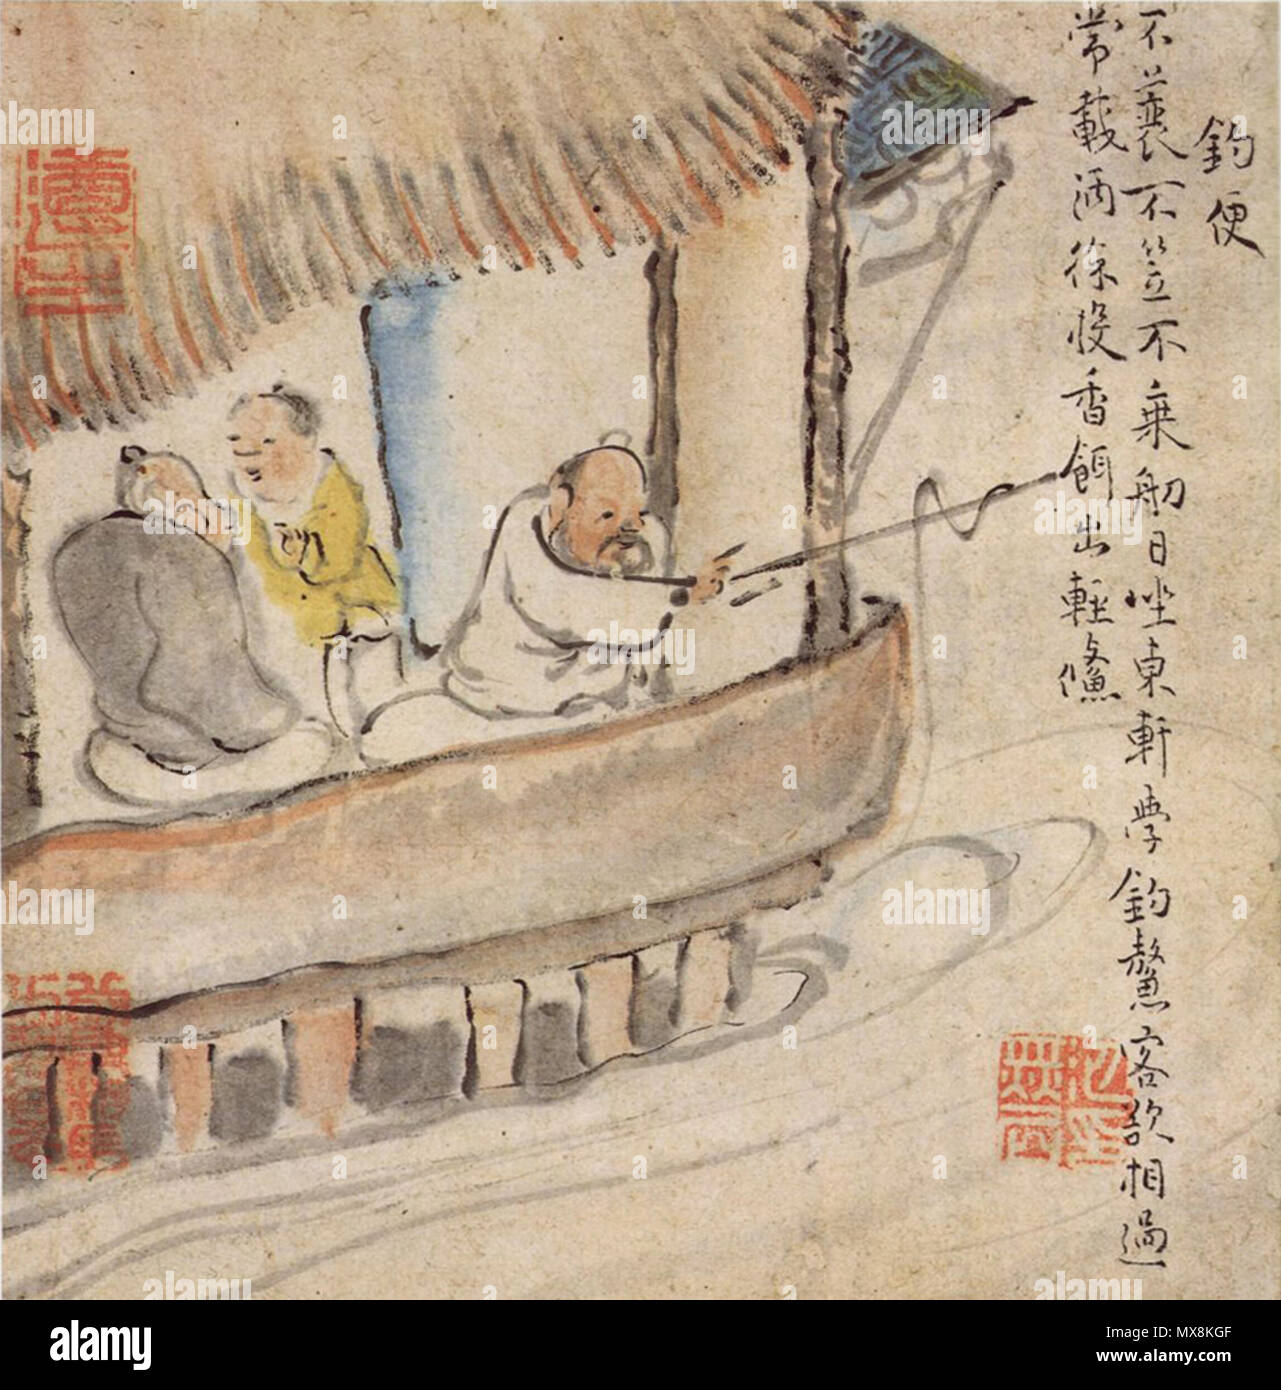 釣便
不蓑不笠不乗舠日坐東軒學釣鰲客欲相過
常載酒徐投香餌出輕鯈
alamy
alamy
alamy
alamy
alamy
alamy
alamy
Image ID: MX8KGF
www.alamy.com